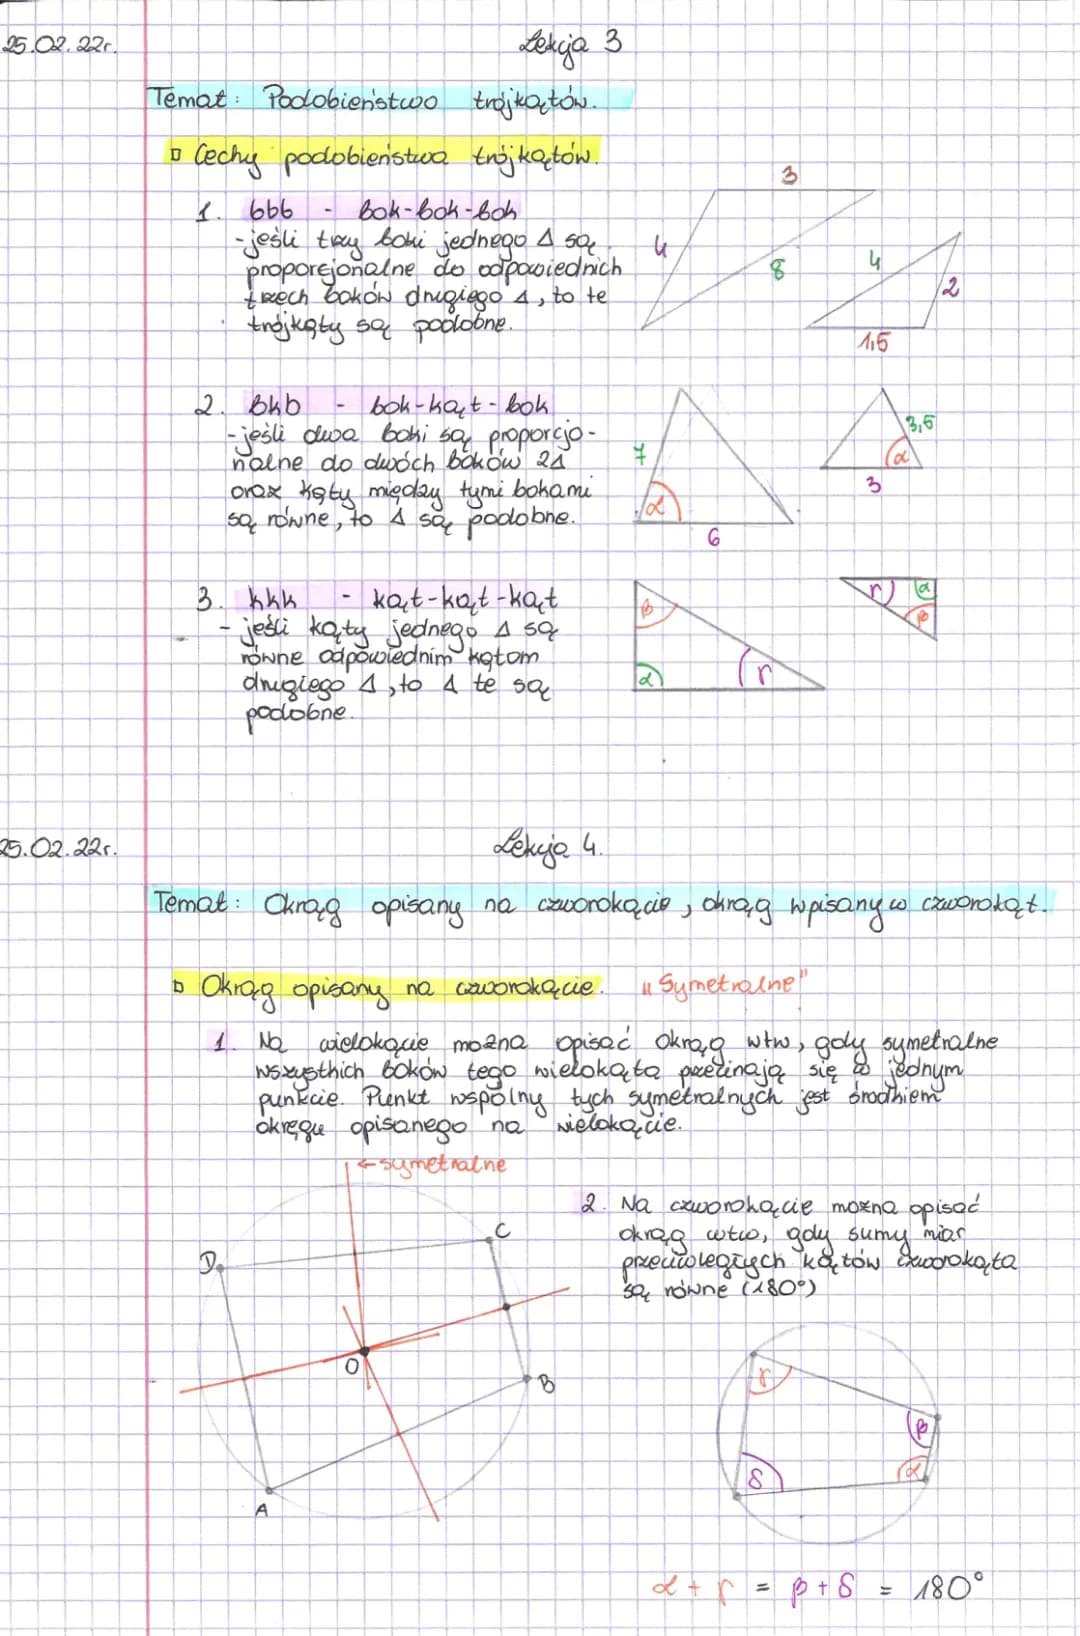 25.02.22r.
Lekcja 3
Temat: Podobieństwo trójkątów.
Cechy podobieństwa trójkątów.
1. bbb - bok-bok-bok
- jeśli trzy boki jednego Δ są
proporcjonalne do odpowiednich
trzech boków drugiego Δ, to te
trójkąty są podobne.
3
4
8
4
2
1,5
2. bkb - bok-kąt-bok
- jeśli dwa boki są proporcjo-
nalne do dwóch boków 2Δ
oraz kąty między tymi bokami
są równe, to Δ są podobne.
7
α
6
3,5
α
3
3. kkk - kąt-kąt-kąt
- jeśli kąty jednego Δ są
równe odpowiednim kątom
drugiego Δ, to Δ te są
podobne.
β
α
γ
γ
α
β
25.02.22r.
Lekcja 4.
Temat: Okrąg opisany na czworokącie, okrąg wpisany w czworokąt.
Okrąg opisany na czworokącie. „Symetralne"
1. Na wielokącie można opisać okrąg wtw, gdy symetralne
wszystkich boków tego wielokąta przecinają się w jednym
punkcie. Punkt wspólny tych symetralnych jest środkiem
okręgu opisanego na wielokącie.
← symetralne
D
C
O
B
A
2. Na czworokącie można opisać
okrąg wtw, gdy sumy miar
przeciwległych kątów czworokąta
są równe (180°)
γ
β
δ
α
α + γ = β + δ = 180°